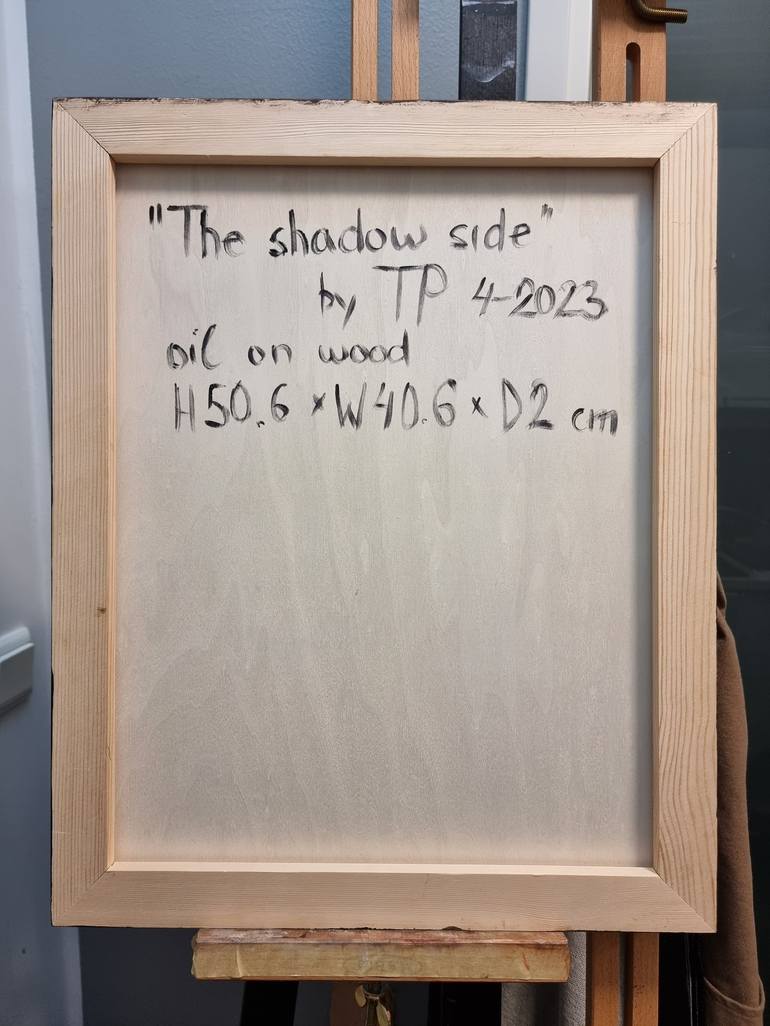 "The shadow side"
by TP 4-2023
oil on wood
H50.6 x W40.6 x D2 cm